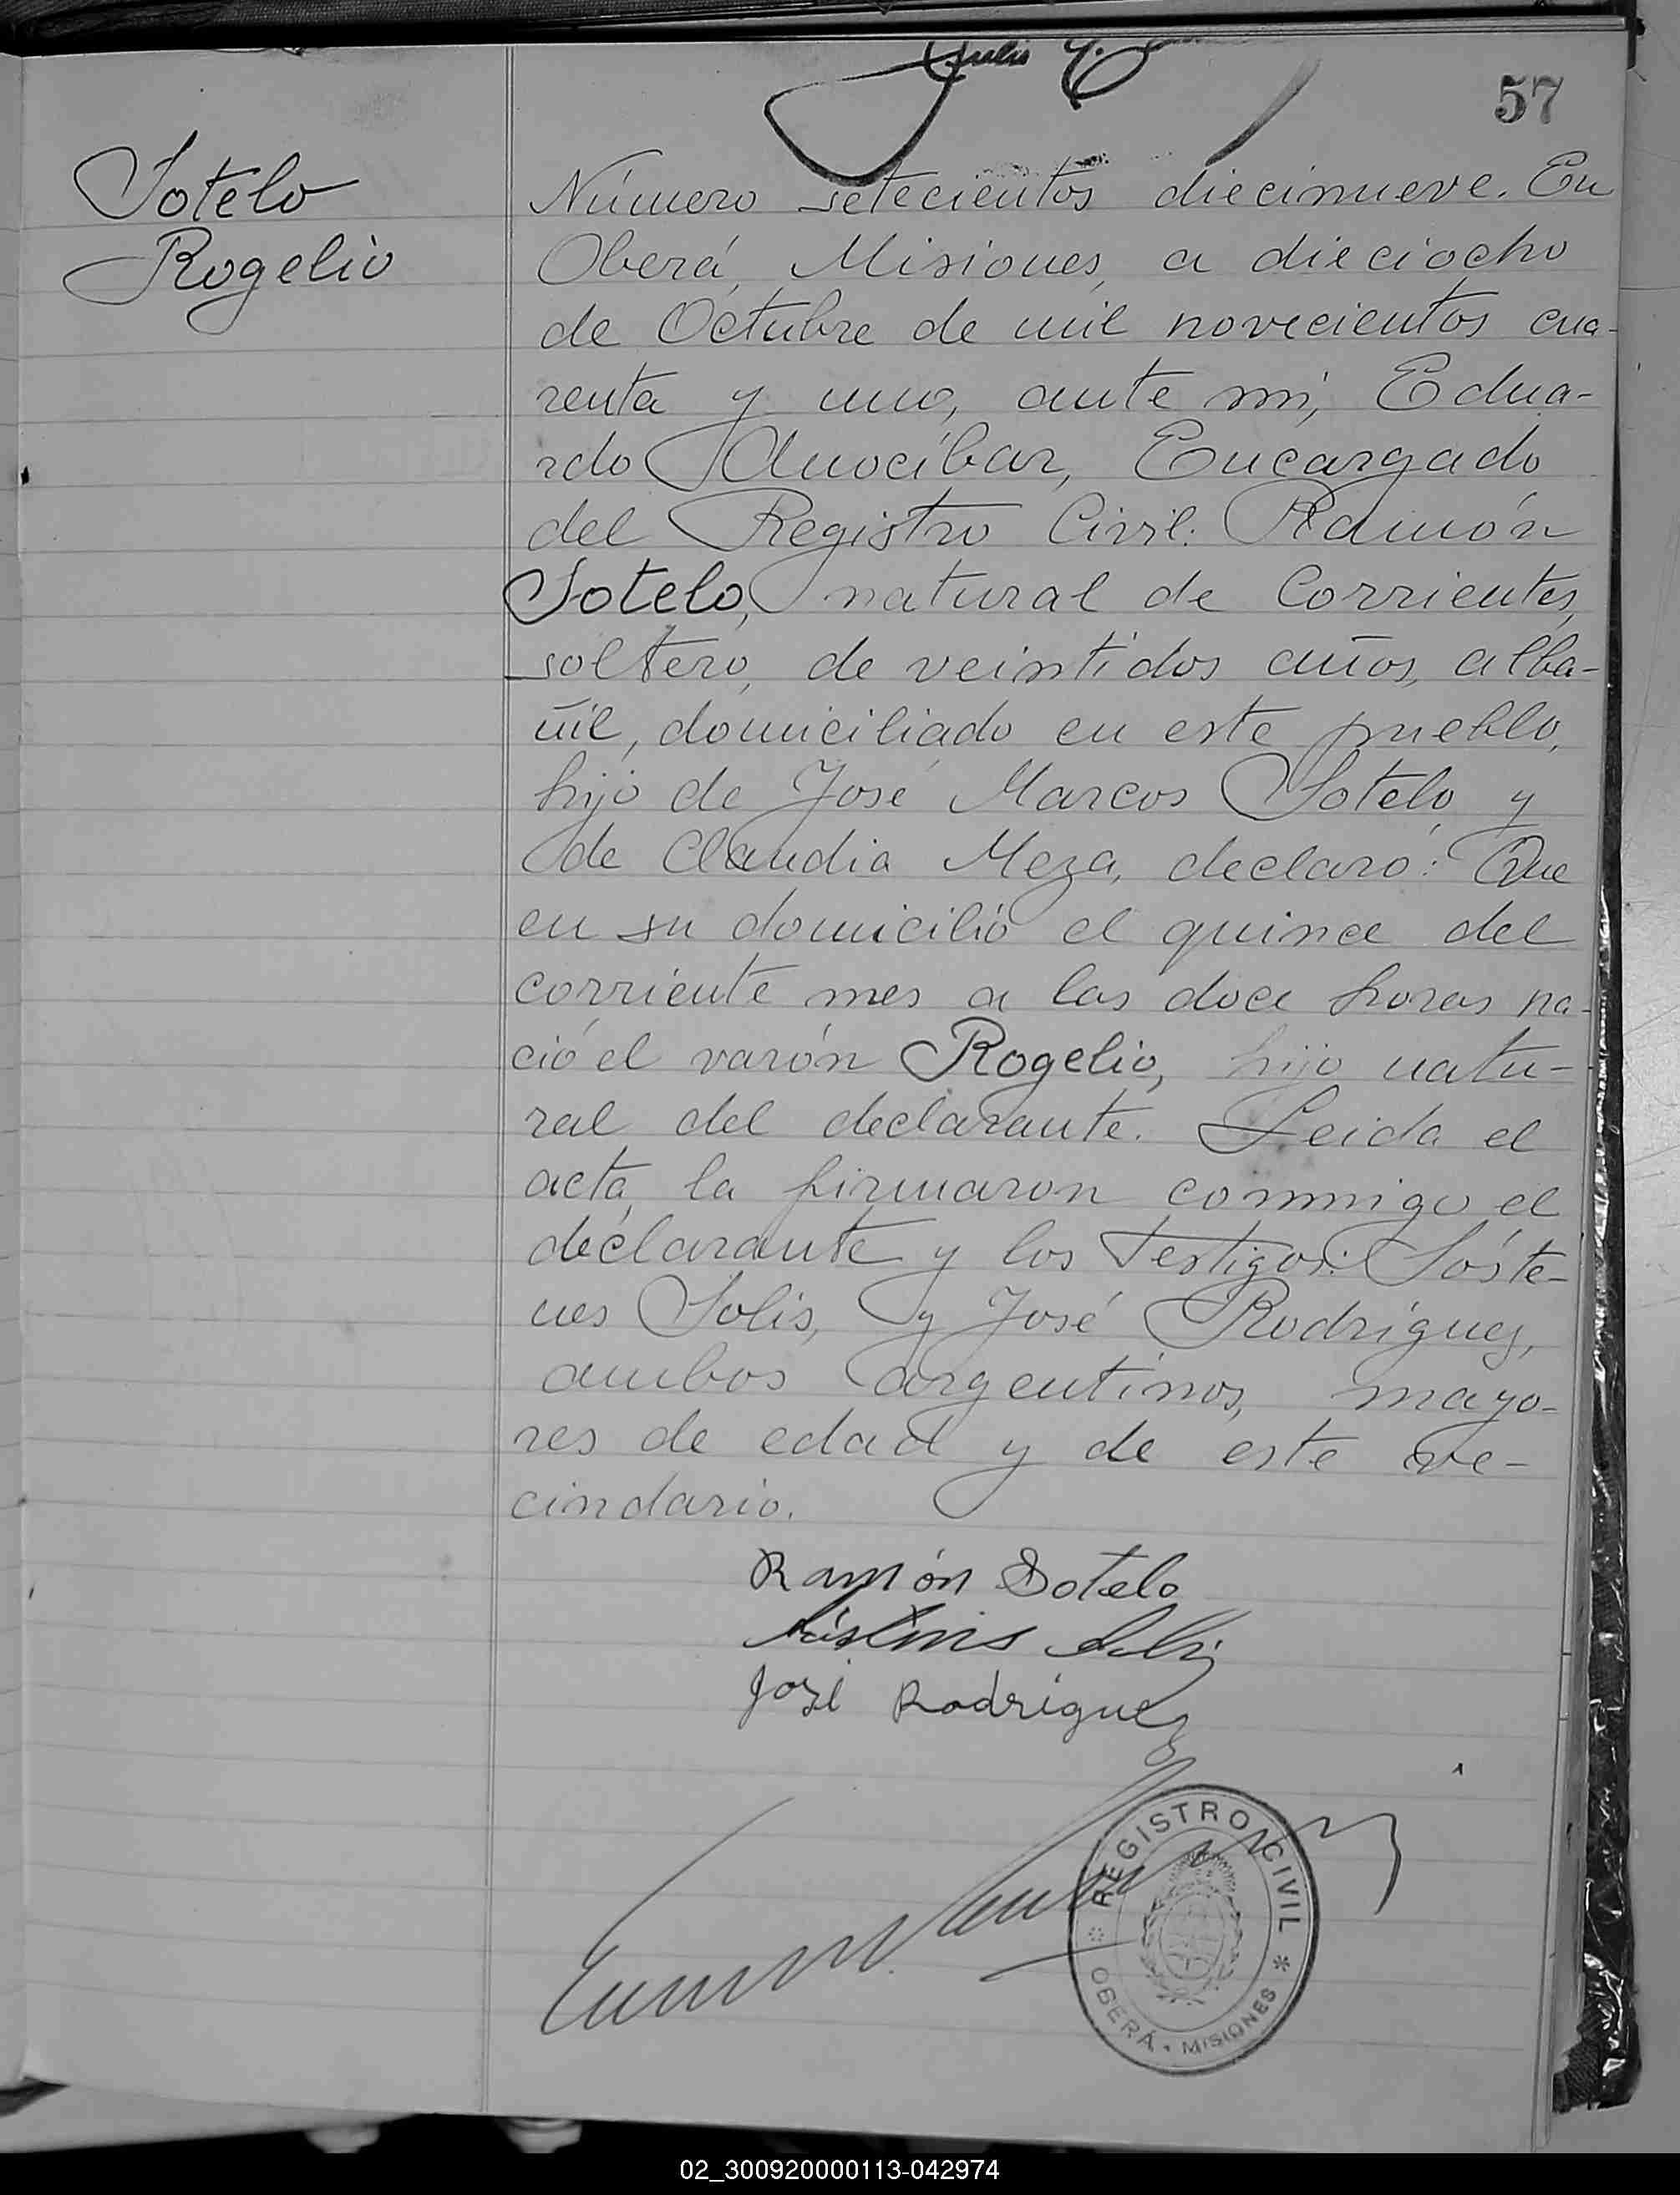 57
Sotelo
Rogelio
Número setecientos diecinueve. En
Oberá, Misiones, a dieciocho
de Octubre de mil novecientos cua-
renta y uno, ante mi, Edua-
rdo Anocíbar, Encargado
del Registro Civil: Ramón
Sotelo, natural de Corrientes,
soltero, de veintidos años, alba-
ñil, domiciliado en este pueblo,
hijo de José Marcos Sotelo, y
de Claudia Meza, declaró: Que
en su domicilio el quince del
corriente mes a las doce horas na-
ció el varón Rogelio, hijo natu-
ral del declarante. Leida el
acta, la firmaron conmigo el
declarante y los testigos: Sóste-
nes Solis, y José Rodríguez,
ambos argentinos, mayo-
res de edad y de este ve-
cindario.
Ramón Sotelo
Sóstenes Solis
José Rodríguez
REGISTRO CIVIL
OBERÁ - MISIONES
02_300920000113-042974